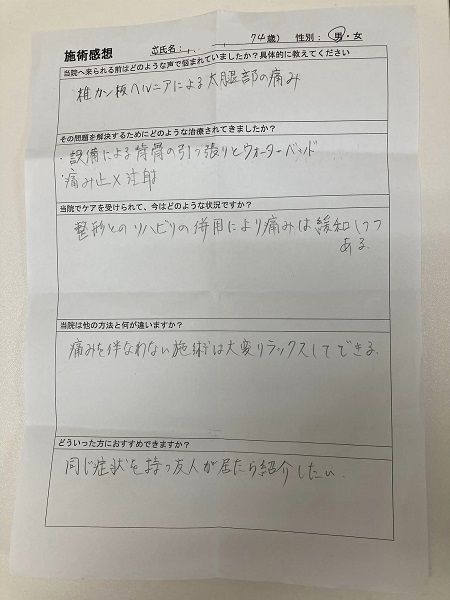 施術感想 氏名: 74歳) 性別: 男・女
当院へ来られる前はどのような声で悩まれていましたか?具体的に教えてください
椎カン板ヘルニアによる大腿部の痛み
その問題を解決するためにどのような治療されてきましたか?
・設備による背骨の引っ張りとウォーターベッド
・痛み止メ注射
当院でケアを受けられて、今はどのような状況ですか?
整形とのリハビリの併用により痛みは緩和しつつ
ある.
当院は他の方法と何が違いますか?
痛みを伴なわない施術は大変リラックスしてできる.
どういった方におすすめできますか?
同じ症状を持つ友人が居たら紹介したい.